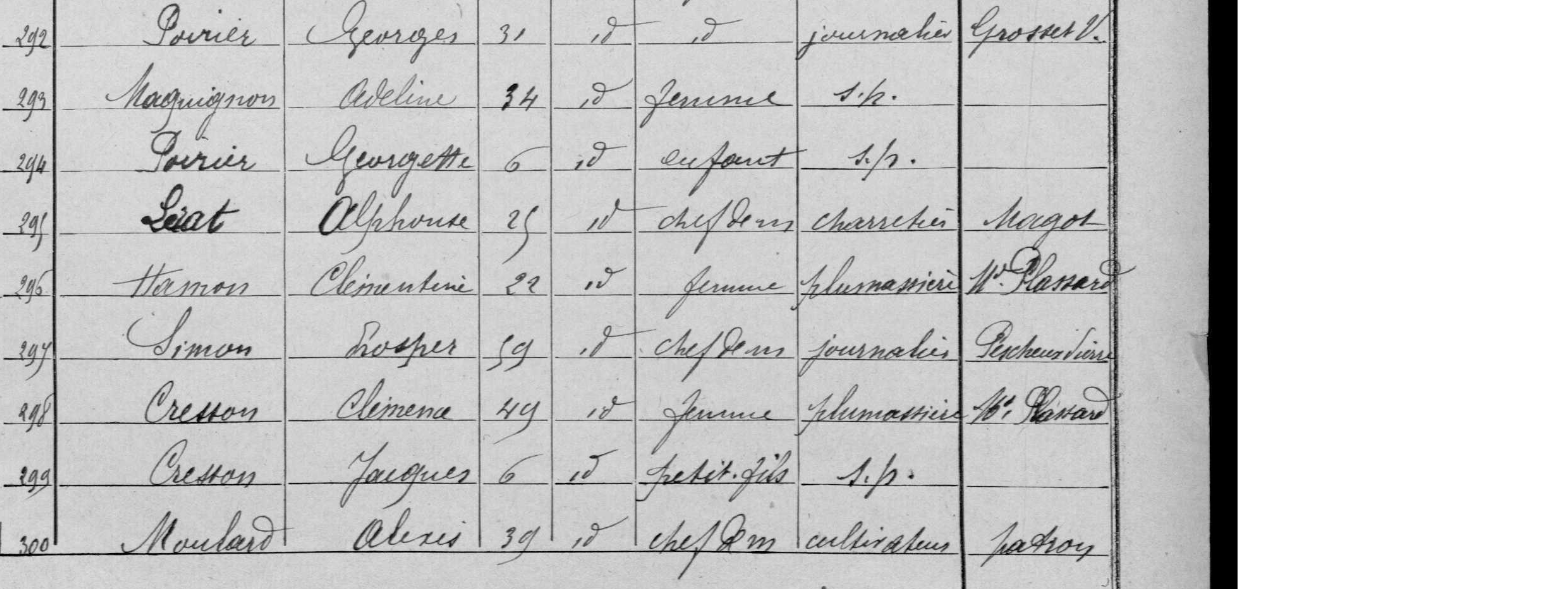 292 Poirier Georges 31 id id journalier Grosset V.
293 Maquignon Adeline 34 id femme s.p.
294 Poirier Georgette 6 id enfant s.p.
295 Lérat Alphonse 25 id chef de m charretier Magot
296 Hamon Clémentine 22 id femme plumassière Md. Plassard
297 Simon Prosper 59 id chef de m journalier Pescheux Pierre
298 Cresson Clémence 49 id femme plumassière Md. Plassard
299 Cresson Jacques 6 id petit-fils s.p.
300 Moulard Alexis 39 id chef de m cultivateur patron